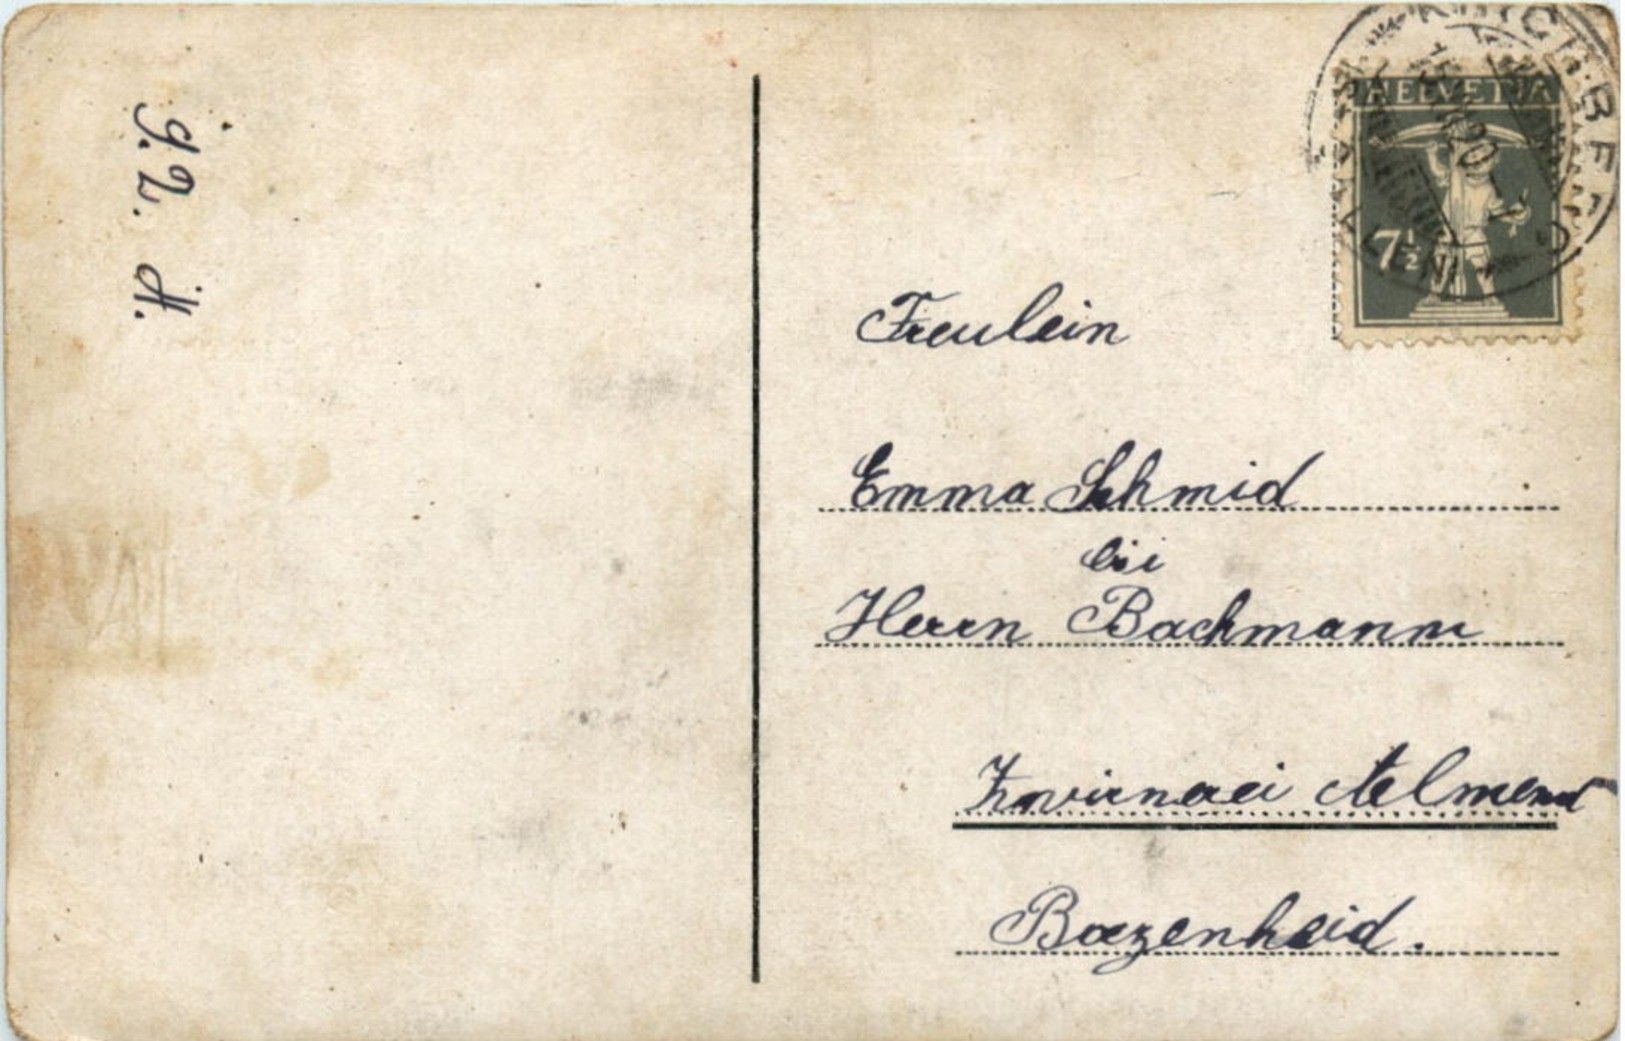 J. Z. H.
HELVETIA
7½
KIRCHBERG
Freulein
Emma Schmid
bei
Herrn Bachmann
Zwirnerei Aelmend
Bazenheid.